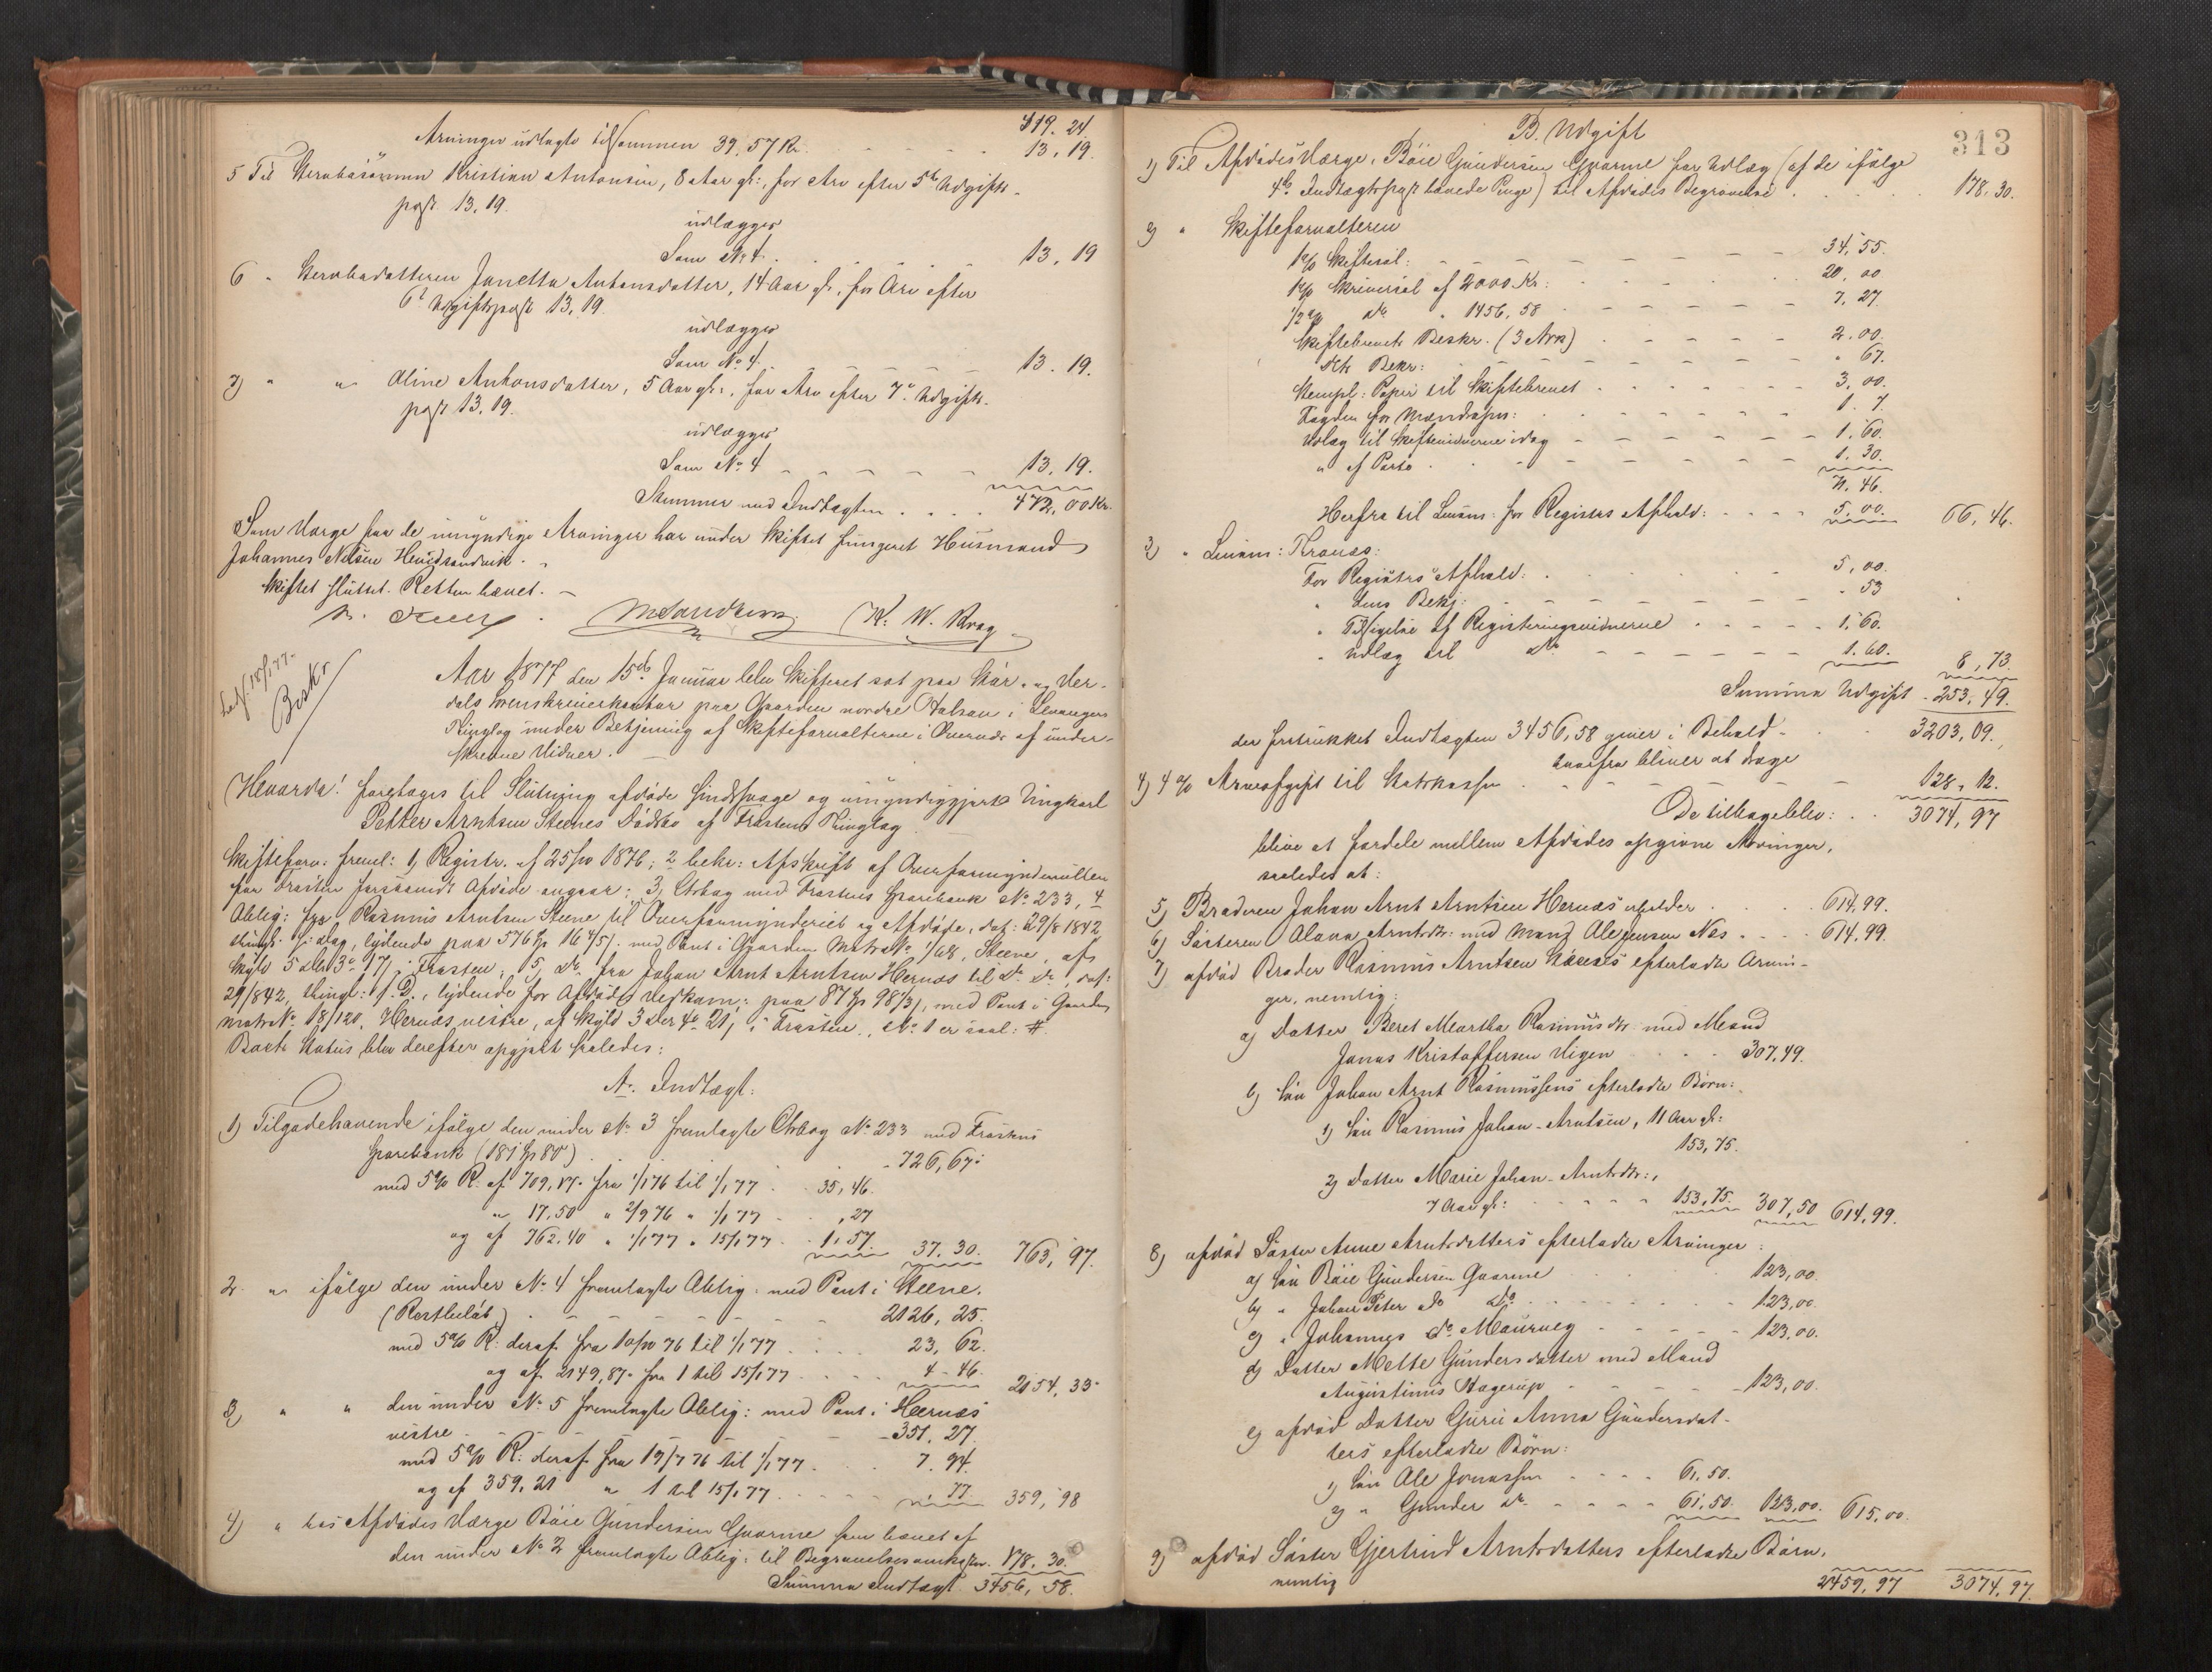 419. 24.
Arvinger udlagte tilsammen 39,57 Kr. 13,19.
5 Til Stervbosønnen Kristian Antonsen, 8 Aar gl:, for Arv efter 5te Udgifts-
post 13.19.
udlægges
Som No 4. 13,19
6 " Stervbodatteren Janetta Antonsdatter, 14 Aar gl., for Arv efter
6te Udgiftspost 13.19.
udlægges
Som No 4. 13.19.
7) " " Oline Antonsdatter, 5 Aar gl:, for Arv efter 7de Udgifts-
post 13.19.
udlægges
Som No 4 13.19.
Stemmer med Indtægten 472,00 Kr.
Som Værge for de umyndige Arvinger har under Skiftet fungeret Husmand
Johannes Nilsen
Skiftet sluttet. Retten hævet.
K. W. Krag
Besk
Aar 1877 den 15de Januar blev Skifteret sat paa Stør- og Ver-
dals Sorenskriverkontor paa Gaarden nordre Halsan i Levanger
Thinglag under Betjening af Skifteforvalteren i Overvær af under-
skrevne Vidner.
Hvorda! foretoges til Slutning afdøde Sindssvage og umyndiggjorte Ungkarl
Petter Arntsen Steenes Dødsbo af Frosten Thinglag
Skifteforv: freml: 1) Registr. af 25/10 1876; 2 bekr: Afskrift af Overformynderrullen
for Frosten forsaavidt Afdøde angaar; 3, Ctrbog med Frostens Sparebank No 233, 4
Oblig: fra Rasmus Arntsen Steene til Overformynderiet og Afdøde, dat: 29/8 1842,
thingl. s. Dag, lydende paa 576 Sp 16 4/5 s. med Pant i Gaarden Matr No 1/68, Steene, af
Skyld 5 Dlr 3 o 17 s. i Frosten; 5, Do. fra Johan Arnt Arntsen Hernæs til do do, dat:
29/8 42, thingl: s. D., lydende for Afdødes Vedkom: paa 87 Sp 98 1/3 s., med Pant i Gaarden
Matr No. 18/120, Hernæs vestre, af Skyld 3 Dlr 4 o 21 s. i Frosten, No 1 er saal: #.
Boets Status blev derefter opgjort saaledes:
A. Indtægt:
1) Tilgodehavende ifølge den under No 3 fremlagte Ctrbog No 233 med Frostens
Sparebank (181 Sp 80) 726,67.
med 5% R. af 709,17. fra 1/1 76 til 1/1 77 35,46.
" 17.50 " 2/9 76 " 1/1 77 ,27
og af 762.40 " 1/1 77 " 15/1 77 1,57 37.30. 763,97.
2 " ifølge den under No 4 fremlagte Oblig: med Pant i Steene.
(Restbeløb) 2126,25.
med 5% R: deraf fra 10/10 76 til 1/1 77 23,62.
og af 2149,87. fra 1 til 15/1 77 4-46. 2154,33.
3) " " den under No 5 fremlagte Oblig: med Pant i Hernæs
vestre 351.27.
med 5% R: deraf fra 19/7 76 til 1/1 77. 7.94.
og af 359.21 " 1 til 15/1 77 77. 359,98
4) " hos Afdødes Værge Böie Gundersen Gvarme som hævet af
den under No 2 fremlagte Oblig: til Begravelsesomkostn. 178.30.
Summa Indtægt 3456,58.
313
B. Udgift
1) Til Afdødes Værge, Böie Gundersen Gvarme for Udlæg (af de ifølge
4de Indtægtspost hævede Penge) til Afdødes Begravelse 178.30.
2) " Skifteforvalteren
1% Skiftesal: 34,55.
1% Skriversal af 2000 Kr: 20,00
1/2% do " 1456,58 7,27.
Skiftebrevets Beskr. (3 Ark) 2.00.
dets Bekr: " 67.
Stempl: Papir til Skiftebrevet 3,00.
1. 7.
Udlæg til Skiftevidnerne idag 1,60.
" af Porto 1.30.
71.46.
Herfra til Lensm: for Registrs Afhold: 5.00. 66,46.
3) " Lensm: Krauss:
For Registrs Afhold: 5,00.
" dens Bekj: " 53
" Tilsigelse af Registeringsvidnerne 1,60.
" Udlæg til do 1.60. 8,73.
Summa Udgift 253,49.
der fratrukket Indtægten 3456,58 giver i Behold 3203,09.
hvorfra bliver at drage
4) 4% Arveafgift til Statskassen 128,12.
De tilbageblev: 3074,97
blive at fordele mellem Afdødes opgivne Arvinger,
saaledes at:
5) Broderen Johan Arnt Arntsen Hernæs erholder 614,99.
6) Søsteren Olava Arntsdtr: med Mand Ole Jensen Næs 614.99.
7) afdød Broder Rasmus Arntsen Steenes efterladte Arvin-
ger, nemlig:
a) Datter Beret Martha Rasmusdtr. med Mand
Jonas Kristoffersen Vigen 307,49.
b) Søn Johan Arnt Rasmussens efterladte Børn:
1) Søn Rasmus Johan-Arntsen, 11 Aar gl:
153,75.
2) Datter Marie Johan-Arntsdtr:,
7 Aar gl: 153,75. 307,50 614,99.
8) afdød Søster Anne Arntsdatters efterladte Arvinger:
a) Søn Böie Gundersen Gvarme 123,00.
b) " Johan Peter do do 123,00.
c) " Johannes do 123,00.
d) Datter Mette Gundersdatter med Mand
Augustinus Hagerup 123,00.
e) afdød Datter Guru Anna Gundersdat-
ters efterladte Børn:
1) Søn Ole Jonassen 61.50.
2) " Gunder do 61.50. 123,00. 615,00.
9) afdød Søster Gjertrud Arntsdatters efterladte Børn,
nemlig
2459,97 3074,97.